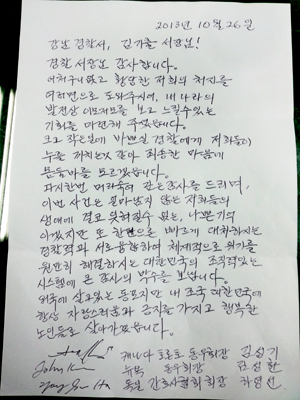 2013년 10월 26일
강남 경찰서, 김기출 서장님!
경찰 서장님 감사합니다.
어처구니없고 황당한 저희의 처지를
여러면으로 도와주시여, 내나라의
발전상 이모저모를 보고 느낄수있는
기회를 마련해 주셨습니다.
크고 작은일에 바쁘실 경찰에게 저희들이
누를 끼치는것 같아 죄송한 마음에
몸둘바를 모르겠습니다.
다시한번 머리숙여 감사를 드리며,
이번 사건은 얼마남지 않은 저희들의
생애에 결코 잊혀질수 없는, 나쁜기억
이겠지만 또 한편으로 빠르게 대처하시는
경찰력과 서로융합하여 체계적으로 뭔가를
원만히 해결하시는 대한민국의 조직력있는
시스템에 큰 감사의 박수를 보냅니다.
외국에 살고있는 동포지만 내 조국 대한민국에
항상 자랑스러움과 긍지를 가지고 행복한
노인들로 살아가겠습니다.
캐나다 토론토 동우회장 김성기
John K 뉴욕 동우회장
독일 간호사협회 회장 하영선